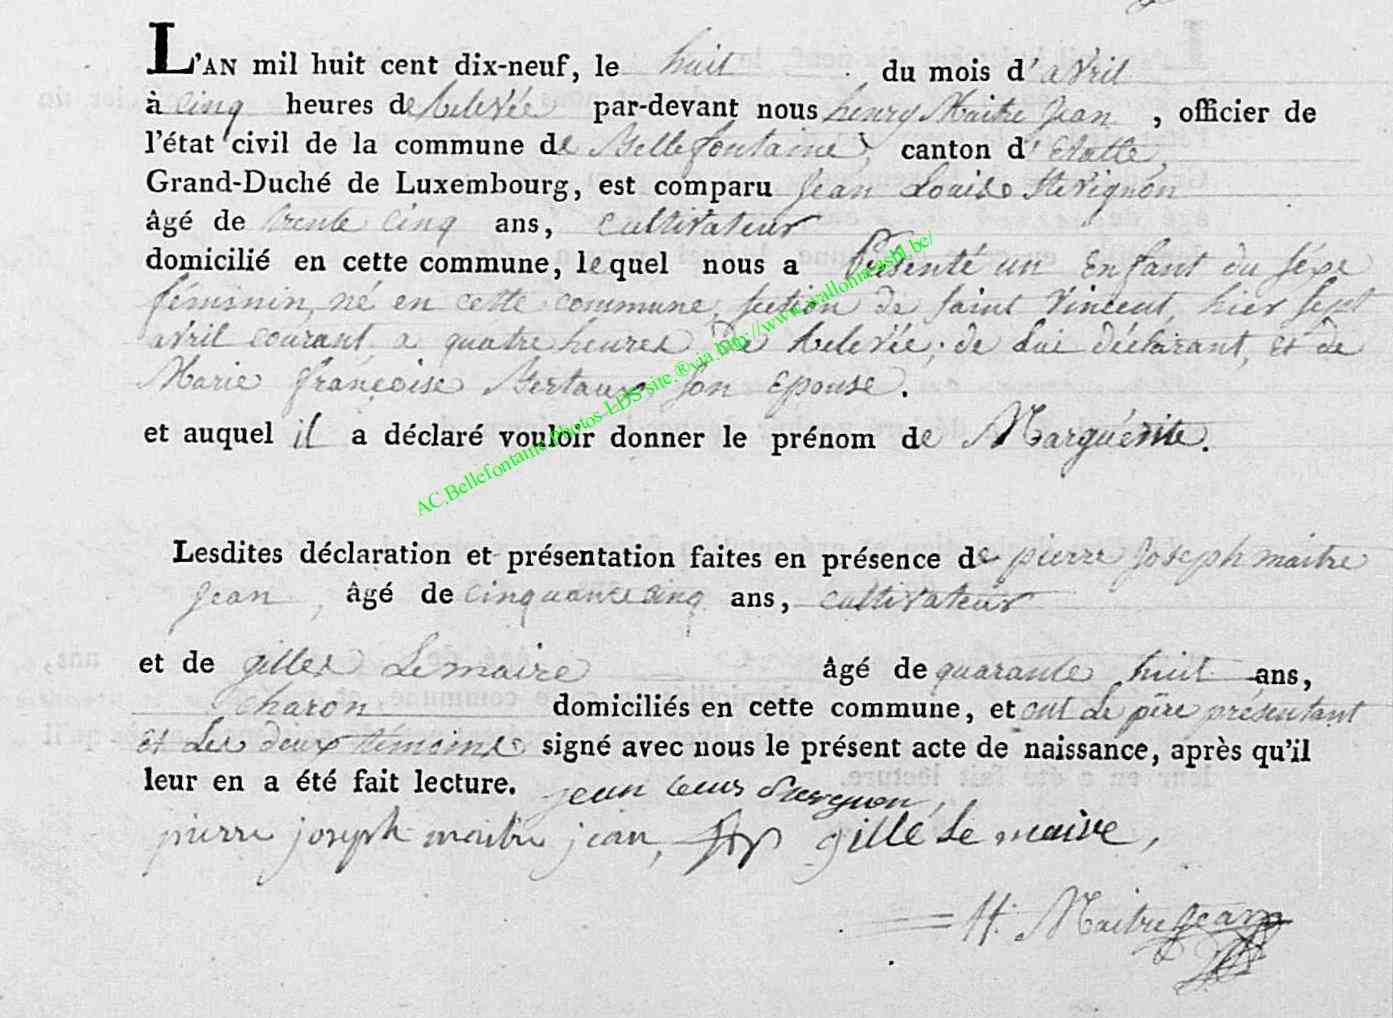 L'AN mil huit cent dix-neuf, le huit du mois d'avril
à cinq heures de Relevée par-devant nous henry Maitre Jean , officier de
l'état civil de la commune de Bellefontaine, canton d'Etalle,
Grand-Duché de Luxembourg, est comparu Jean Louis
âgé de trente cinq ans, cultivateur
domicilié en cette commune, lequel nous a présenté un Enfant du sexe
féminin, né en cette commune, section de Saint Vincent, hier sept
avril courant a quatre heures de Relevée, de Lui déclarant, et de
Marie françoise Bertaux son Epouse.
et auquel il a déclaré vouloir donner le prénom de Marguérite.
AC.Bellefontaine.Photos LDS site.®via http://www.wallonia-asbl.be/
Lesdites déclaration et présentation faites en présence de pierre Joseph maitre
Jean , âgé de cinquante cinq ans, cultivateur
et de gilles Lemaire âgé de quarante huit ans,
Charon domiciliés en cette commune, et ont Le père présentant
et Les deux témoins signé avec nous le présent acte de naissance, après qu'il
leur en a été fait lecture. jean louis
pierre joseph maitre jean, gille le maire,
H. MaitreJean